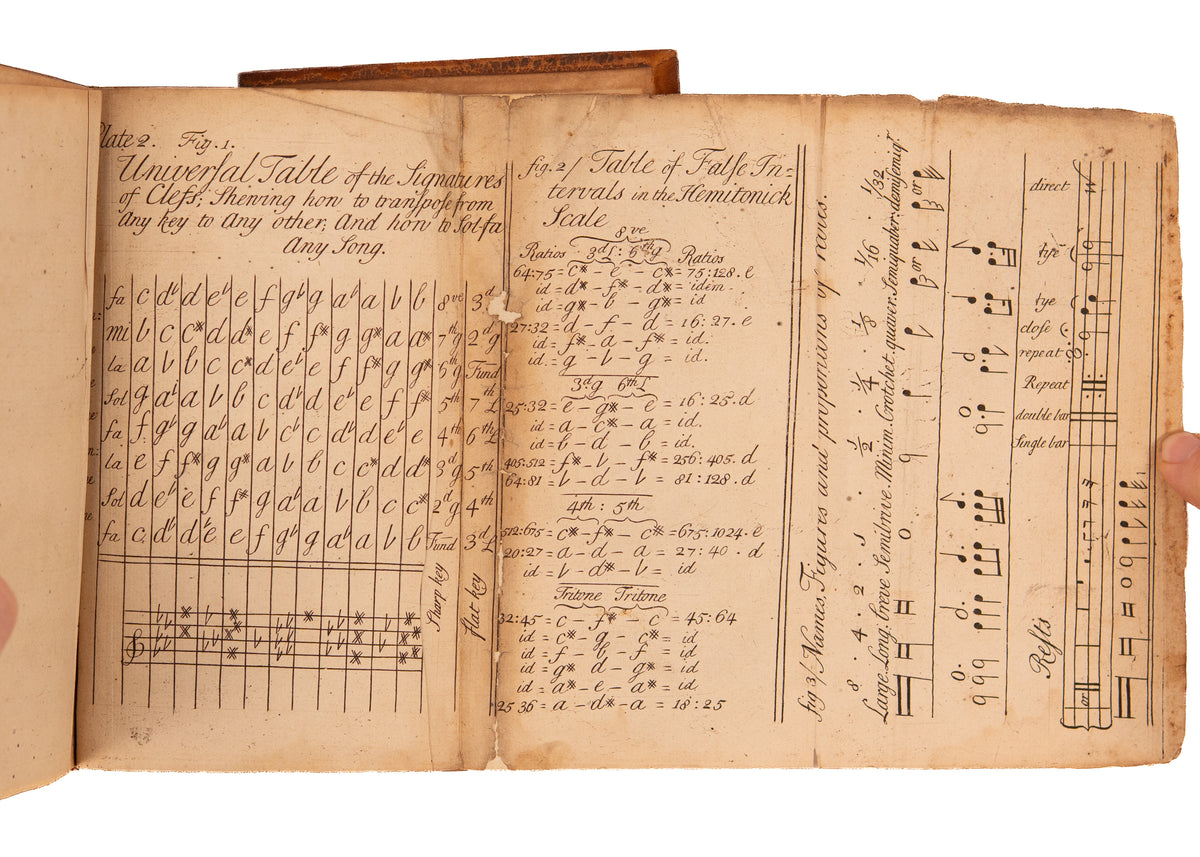 Plate 2. Fig. 1.
Universal Table of the Signatures
of Clefs; Shewing how to transpose from
Any key to Any other; And how to Sol-fa
Any Song.
fa c d♭ d e♭ e f g♭ g a♭ a ♭ b 8ve 3d
mi b c c* d d* e f f* g g* a a* 7th g 2d g
la a ♭ b c c* d e♭ e f f* g g* 6th g Fund
Sol g a♭ a ♭ b c d♭ d e♭ e f f* 5th 7th L
fa f g♭ g a♭ a ♭ c♭ c d♭ d e♭ e 4th 6th L
la e f f* g g* a ♭ b c c* d d* 3d g 5th
Sol d e♭ e f f* g a♭ a ♭ b c c* 2d g 4th
fa c d♭ d e♭ e f g♭ g a♭ a ♭ b Fund 3d L
Sharp key
flat key
fig. 2/ Table of False In=
tervals in the Hemitonick
Scale
8ve
Ratios 3d L : 6th g Ratios
64:75 = c* - e - c* = 75:128. e
id = d* - f* - d* = idem.
id = g* - b - g* = id
27:32 = d - f - d = 16:27. e
id = f* - a - f* = id.
id = g - ♭ - g = id.
3d g 6th L
25:32 = e - g* - e = 16:25. d
id = a - c* - a = id.
id = b - d - b = id.
405:512 = f* - ♭ - f* = 256:405. d
64:81 = ♭ - d - ♭ = 81:128. d
4th : 5th
512:675 = c* - f* - c* = 675:1024. e
20:27 = a - d - a = 27:40. d
id = ♭ - d* - ♭ = id
Tritone Tritone
32:45 = c - f* - c = 45:64
id = c* - g - c* = id
id = f - b - f = id
id = g* d - g* = id
id = a* - e - a* = id.
25 36 = a - d* - a = 18:25
fig 3/ Names, Figures and proportions of
8 . 4 . 2 . 1 1/2 1/4 1/8 1/16 1/32
Large. Long. breve Semibreve. Minim. Crotchet. quaver. Semiquaver: demisemiqr
or or
direct
tye
tye
close
repeat
Repeat
double bar
Single bar
Rests
or